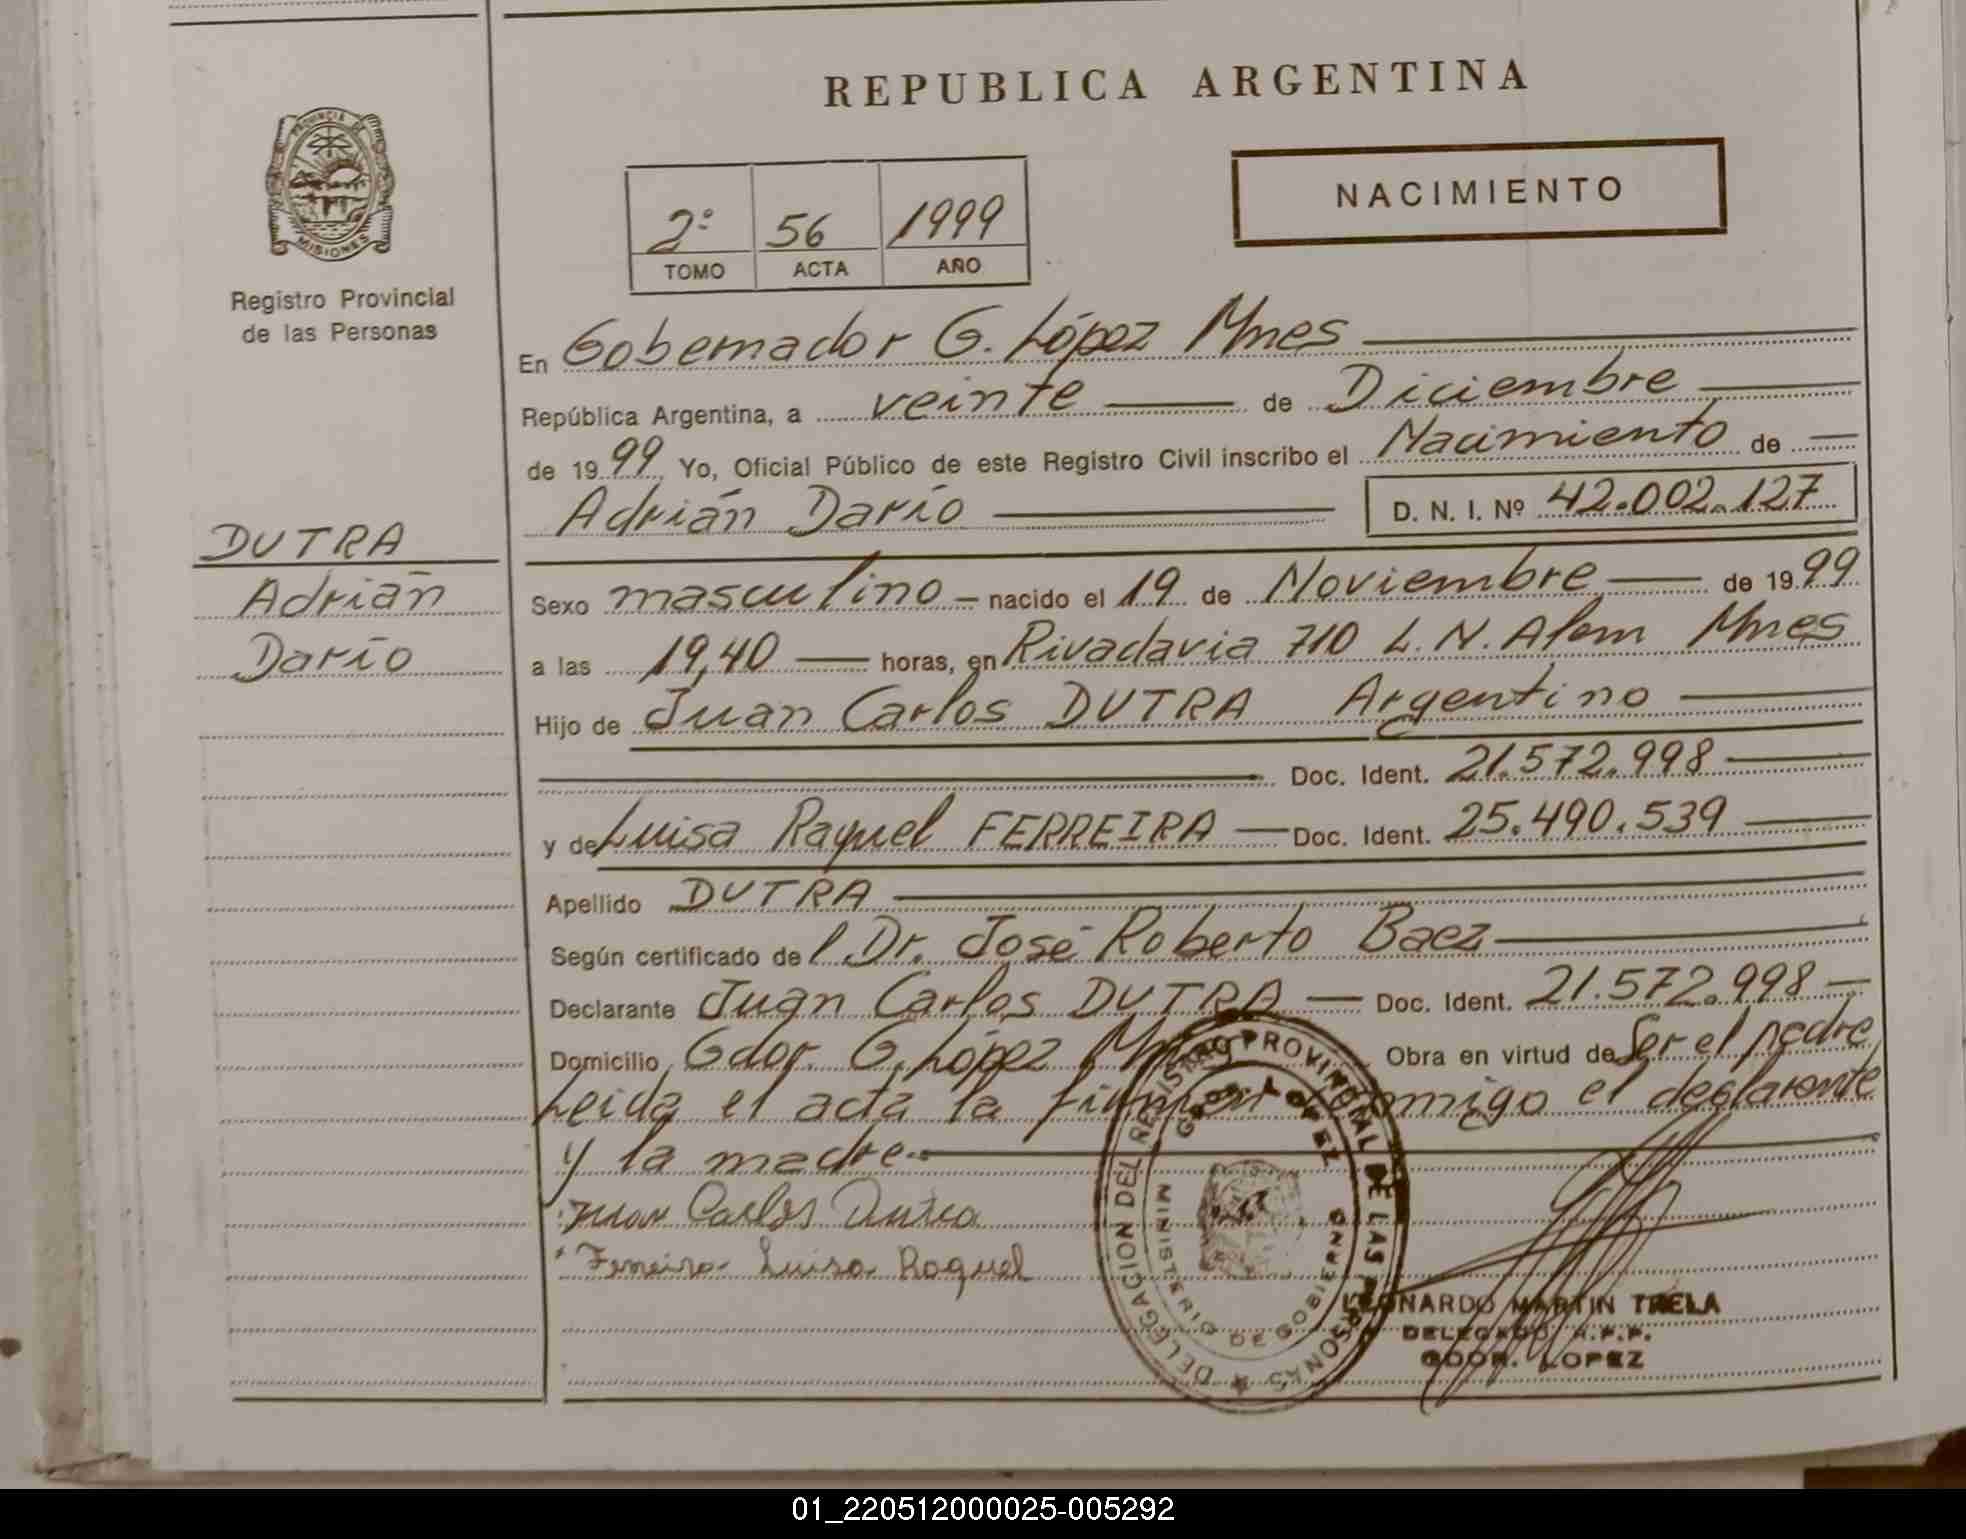 REPUBLICA ARGENTINA
PROVINCIA DE
MISIONES
Registro Provincial
de las Personas
NACIMIENTO
2º 56 1999
TOMO ACTA AÑO
En Gobernador G. López Mnes
República Argentina, a veinte de Diciembre
de 1999 Yo, Oficial Público de este Registro Civil inscribo el Nacimiento de
Adrián Darío D. N. I. Nº 42.002.127
DUTRA
Adrián
Darío
Sexo masculino nacido el 19 de Noviembre de 1999
a las 19,40 horas, en Rivadavia 710 L. N. Alem Mnes
Hijo de Juan Carlos DUTRA Argentino
Doc. Ident. 21.572.998
y de Luisa Raquel FERREIRA Doc. Ident. 25.490.539
Apellido DUTRA
Según certificado del Dr. José Roberto Baez
Declarante Juan Carlos DUTRA Doc. Ident. 21.572.998
Domicilio Gdor. G. López Mnes Obra en virtud de Ser el padre
Leida el acta la firman conmigo el declarante
y la madre.
Juan Carlos Dutra
Ferreira Luisa Raquel
DELEGACION DEL REGISTRO PROVINCIAL DE LAS PERSONAS
GDOR. LOPEZ
MINISTERIO DE GOBIERNO
LEONARDO MARTIN TRELA
DELEGADO R.P.P.
GDOR. LOPEZ
01_220512000025-005292